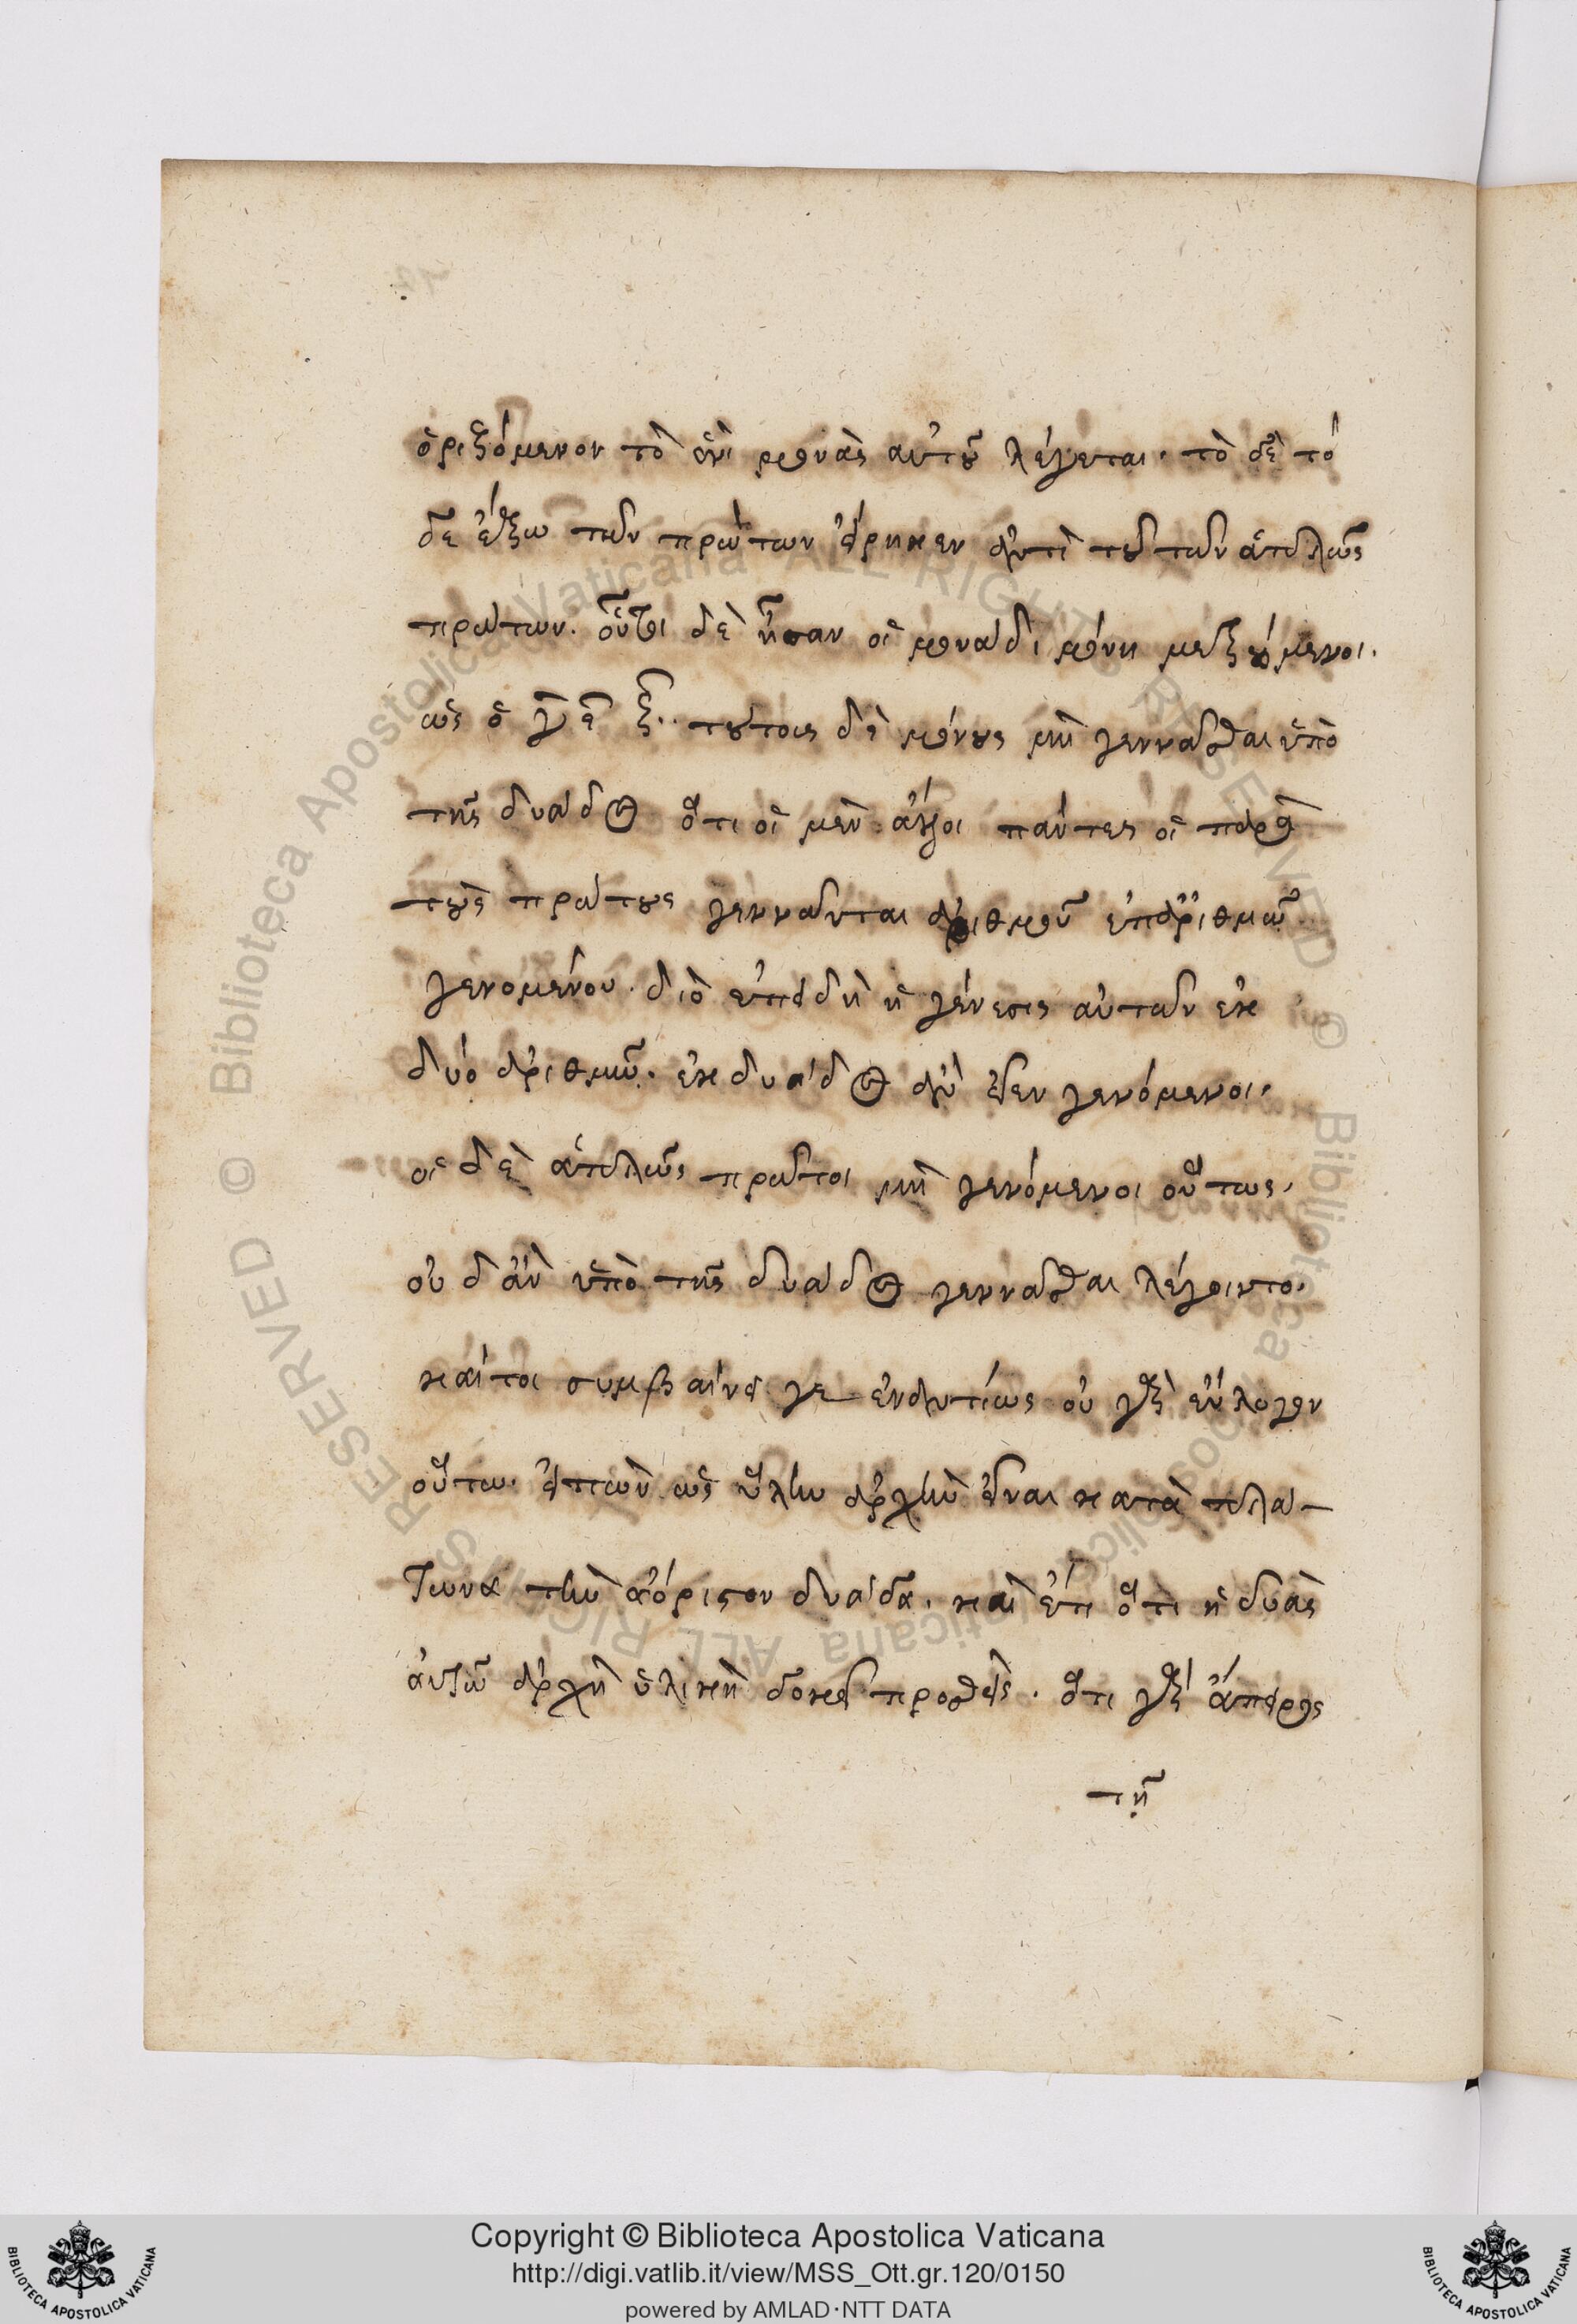 ὁριζόμενον τὸ ἑνὶ μονὰς αὐτοῦ λέγεται. τὸ δὲ τό
δε ἔξω τῶν πρώτων εἴρηκεν ἀντὶ τοῦ τῶν ἁπλῶς
πρώτων. οὗτοι δὲ ἦσαν οἱ μονάδι μόνῃ μετρούμενοι.
ὡς ὁ γ ε ζ. τούτοις δὲ μόνους μὴ γεννᾶσθαι ὑπὸ
τῆς δυάδος ὅτι οἱ μὲν ἄλλοι πάντες οἱ παρὰ
τοὺς πρώτους γεννῶνται ἀριθμοῦ ἐπ ἀριθμῶ
γενομένου. διὸ ἐπειδὴ ἡ γένεσις αὐτῶν ἐκ
δύο ἀριθμῶν. ἐκ δυάδος ἂν εἶεν γενόμενοι.
οἱ δὲ ἁπλῶς πρῶτοι μὴ γενόμενοι οὕτως.
οὐδ ἂν ὑπὸ τῆς δυάδος γεννᾶσθαι λέγοιντο.
καίτοι συμβαίνει γε ἐναντίως οὐ γὰρ εὔλογον
οὕτω. εἰπὼν ὡς ὕλην ἀρχὴν εἶναι κατὰ πλά-
τωνα τὴν ἀόριστον δυάδα. καὶ ἔτι ὅτι ἡ δυὰς
αὐτῶ ἀρχὴ ὑλικὴ δοκεῖ προσθεὶς. ὅτι γὰρ ἄπειρος
τῆ
Copyright © Biblioteca Apostolica Vaticana
http://digi.vatlib.it/view/MSS_Ott.gr.120/0150
powered by AMLAD·NTT DATA